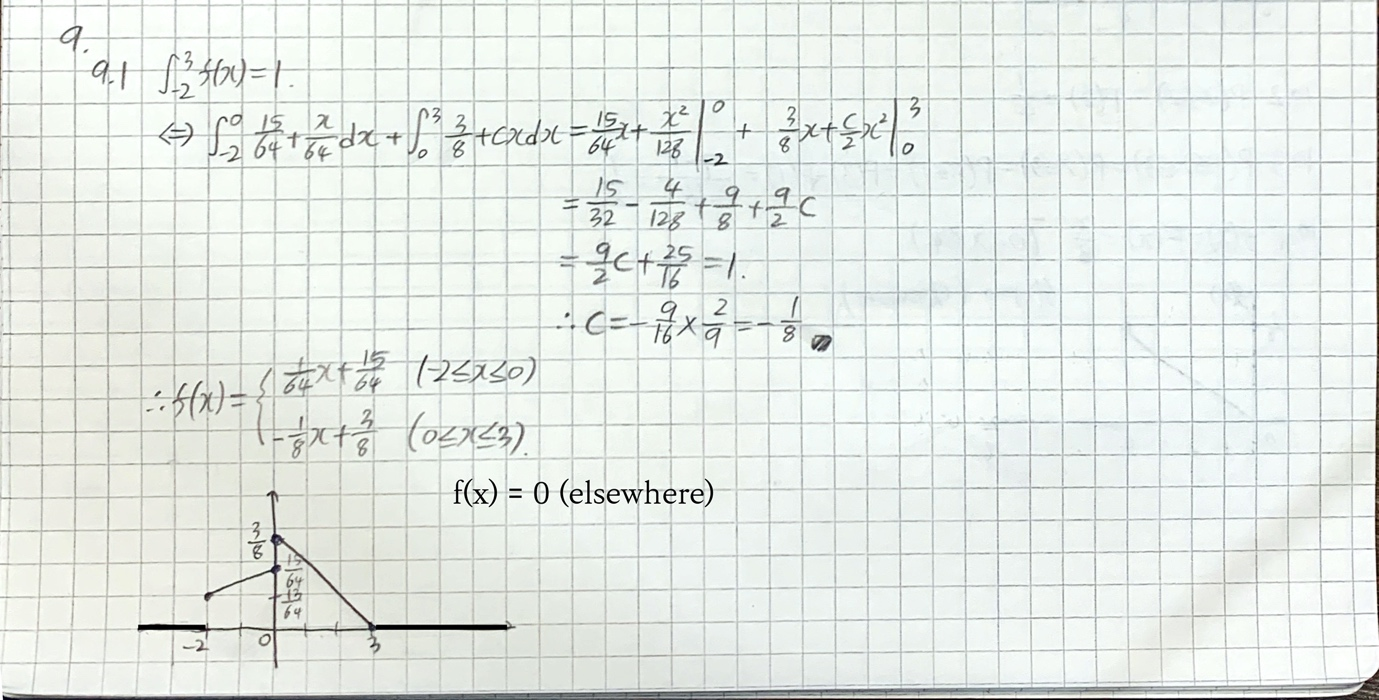 9.
9.1 ∫₋₂³ f(x) = 1.
⇔ ∫₋₂⁰ 15/64 + x/64 dx + ∫₀³ 3/8 + cx dx = 15/64 x + x²/128 |₋₂⁰ + 3/8 x + c/2 x² |₀³
= 15/32 - 4/128 + 9/8 + 9/2 C
= 9/2 C + 25/16 = 1.
∴ C = - 9/16 × 2/9 = - 1/8
∴ f(x) = { 1/64 x + 15/64 (-2 ≤ x ≤ 0)
- 1/8 x + 3/8 (0 ≤ x ≤ 3).
f(x) = 0 (elsewhere)
3/8
15/64
13/64
-2 0 3